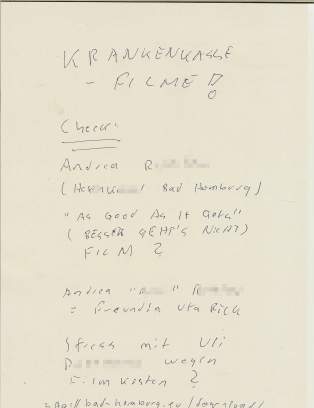 KRANKENKASSE
- FILME !
Check:
Andrea R
( Bad Homburg)
"As Good As It Gets"
(BESSER GEHT'S NICHT)
FILM ?
Andrea " "
= Freundin Uta Bick
Stress mit Uli
wegen
Filmkosten ?
bad-homburg.eu/download/